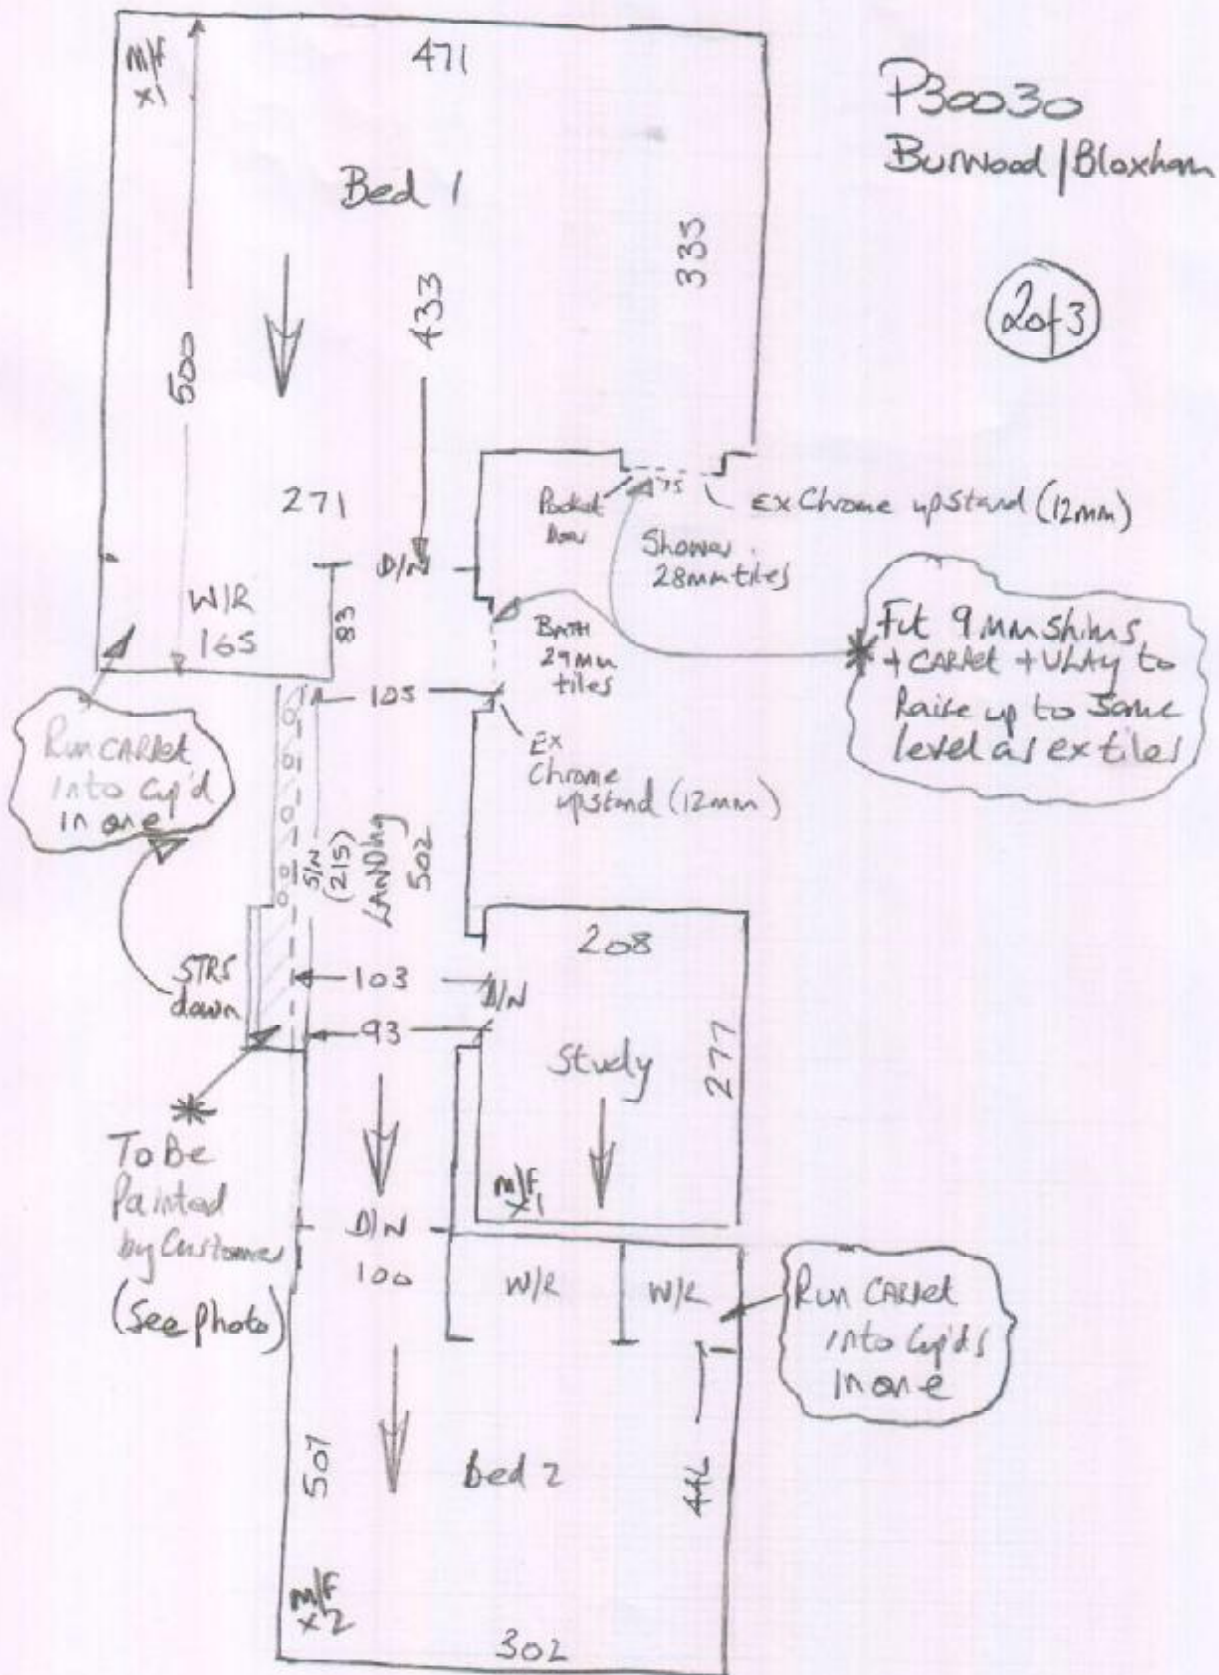 P30030
Burwood / Bloxham
2 of 3
M/F
x1
471
Bed 1
335
433
500
271
D/N
W/R
165
83
Pocket
Door
75
Ex Chrome upstand (12mm)
Shower
28mm tiles
BATH
29mm
tiles
Fit 9mm shims
+ CARPet + ULAY to
Raise up to Same
level as ex tiles
105
Ex
Chrome
upstand (12mm)
Run CARPet
into Cup'd
in one
S/N
(215)
LANDing
502
208
STRS
down
103
D/N
93
Study
277
M/F
x1
To Be
Painted
by Customer
(See Photo)
D/N
100
W/R
W/R
Run CARPet
into Cup'ds
in one
507
Bed 2
442
M/F
x2
302